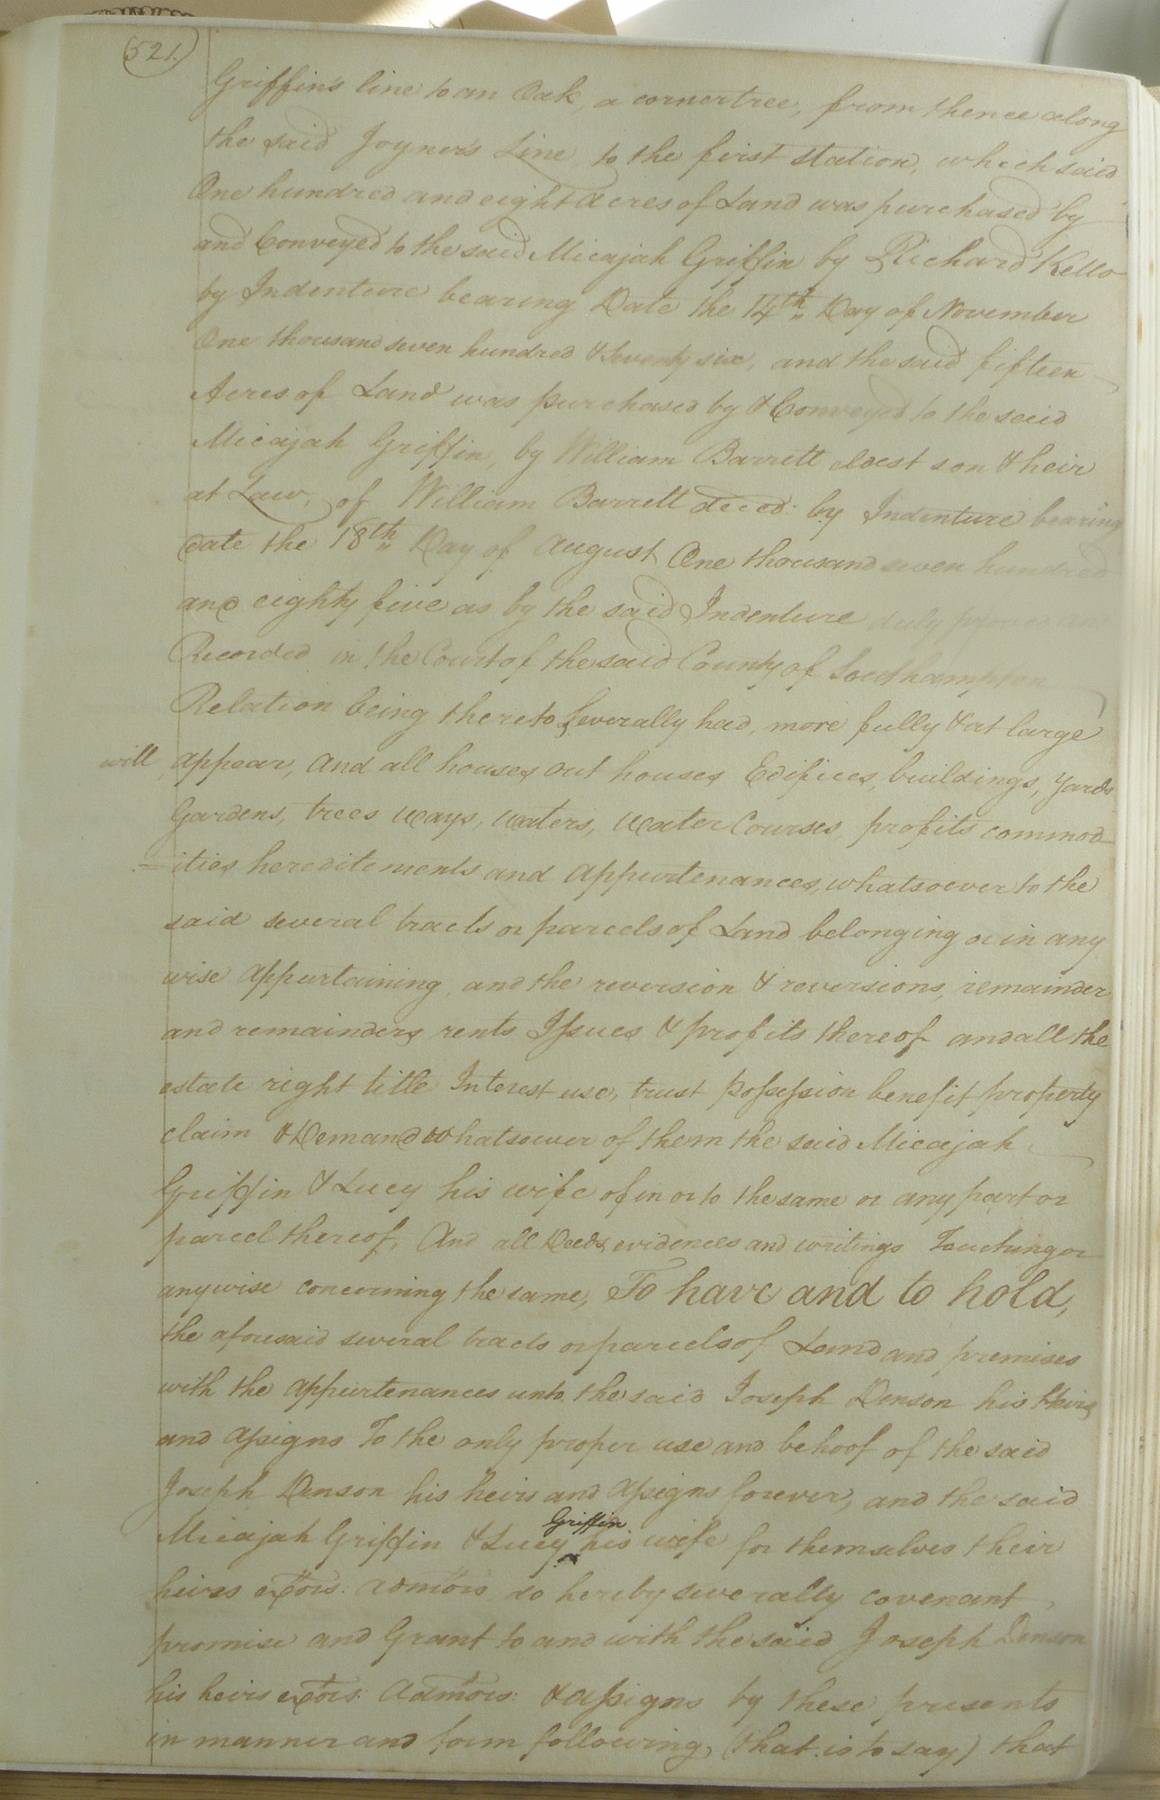 521.
Griffin's line to an Oak, a corner tree, from thence along
the said Joyner's Line to the first station, which said
One hundred and eight Acres of Land was purchased by
and Conveyed to the said Micajah Griffin by Richard Kello
by Indenture bearing Date the 14th Day of November
One thousand seven hundred & Seventy six, and the said fifteen
Acres of Land was purchased by & Conveyed to the said
Micajah Griffin, by William Barrett eldest son & heir
at Law, of William Barrett deced. by Indenture bearing
date the 18th Day of August One thousand seven hundred
and eighty five as by the said Indenture duly proved and
Recorded in the Court of the said County of Southampton
Relation being thereto Severally had, more fully & at large
will appear, And all houses out houses Edifices, buildings, yards
Gardens, trees ways, waters, water Courses profits commod
=ities hereditements and appurtenances, whatsoever to the
said several tracts or parcels of Land belonging or in any
wise appurtaining, and the reversion & reversions, remainder
and remainders, rents Issues & profits thereof and all the
estate right title Interest use, trust possession benefit property
claim & Demand whatsoever of them the said Micajah
Griffin & Lucy his wife of in or to the same or any part or
parcel thereof, And all Deeds, evidences and writings Touching or
anywise concerning the same, To have and to hold,
the aforesaid several tracts or parcels of Land and premises
with the appurtenances unto the said Joseph Denson his Heirs
and assigns To the only proper use and behoof of the said
Joseph Denson his heirs and assigns forever, and the said
Micajah Griffin & Lucy ^ Griffin his wife for themselves their
heires exōrs: admōrs do hereby severally covenant
promise and Grant to and with the said Joseph Denson
his heirs exōrs: Admōrs: & assigns by these presents
in manner and form following, (that is to say) that